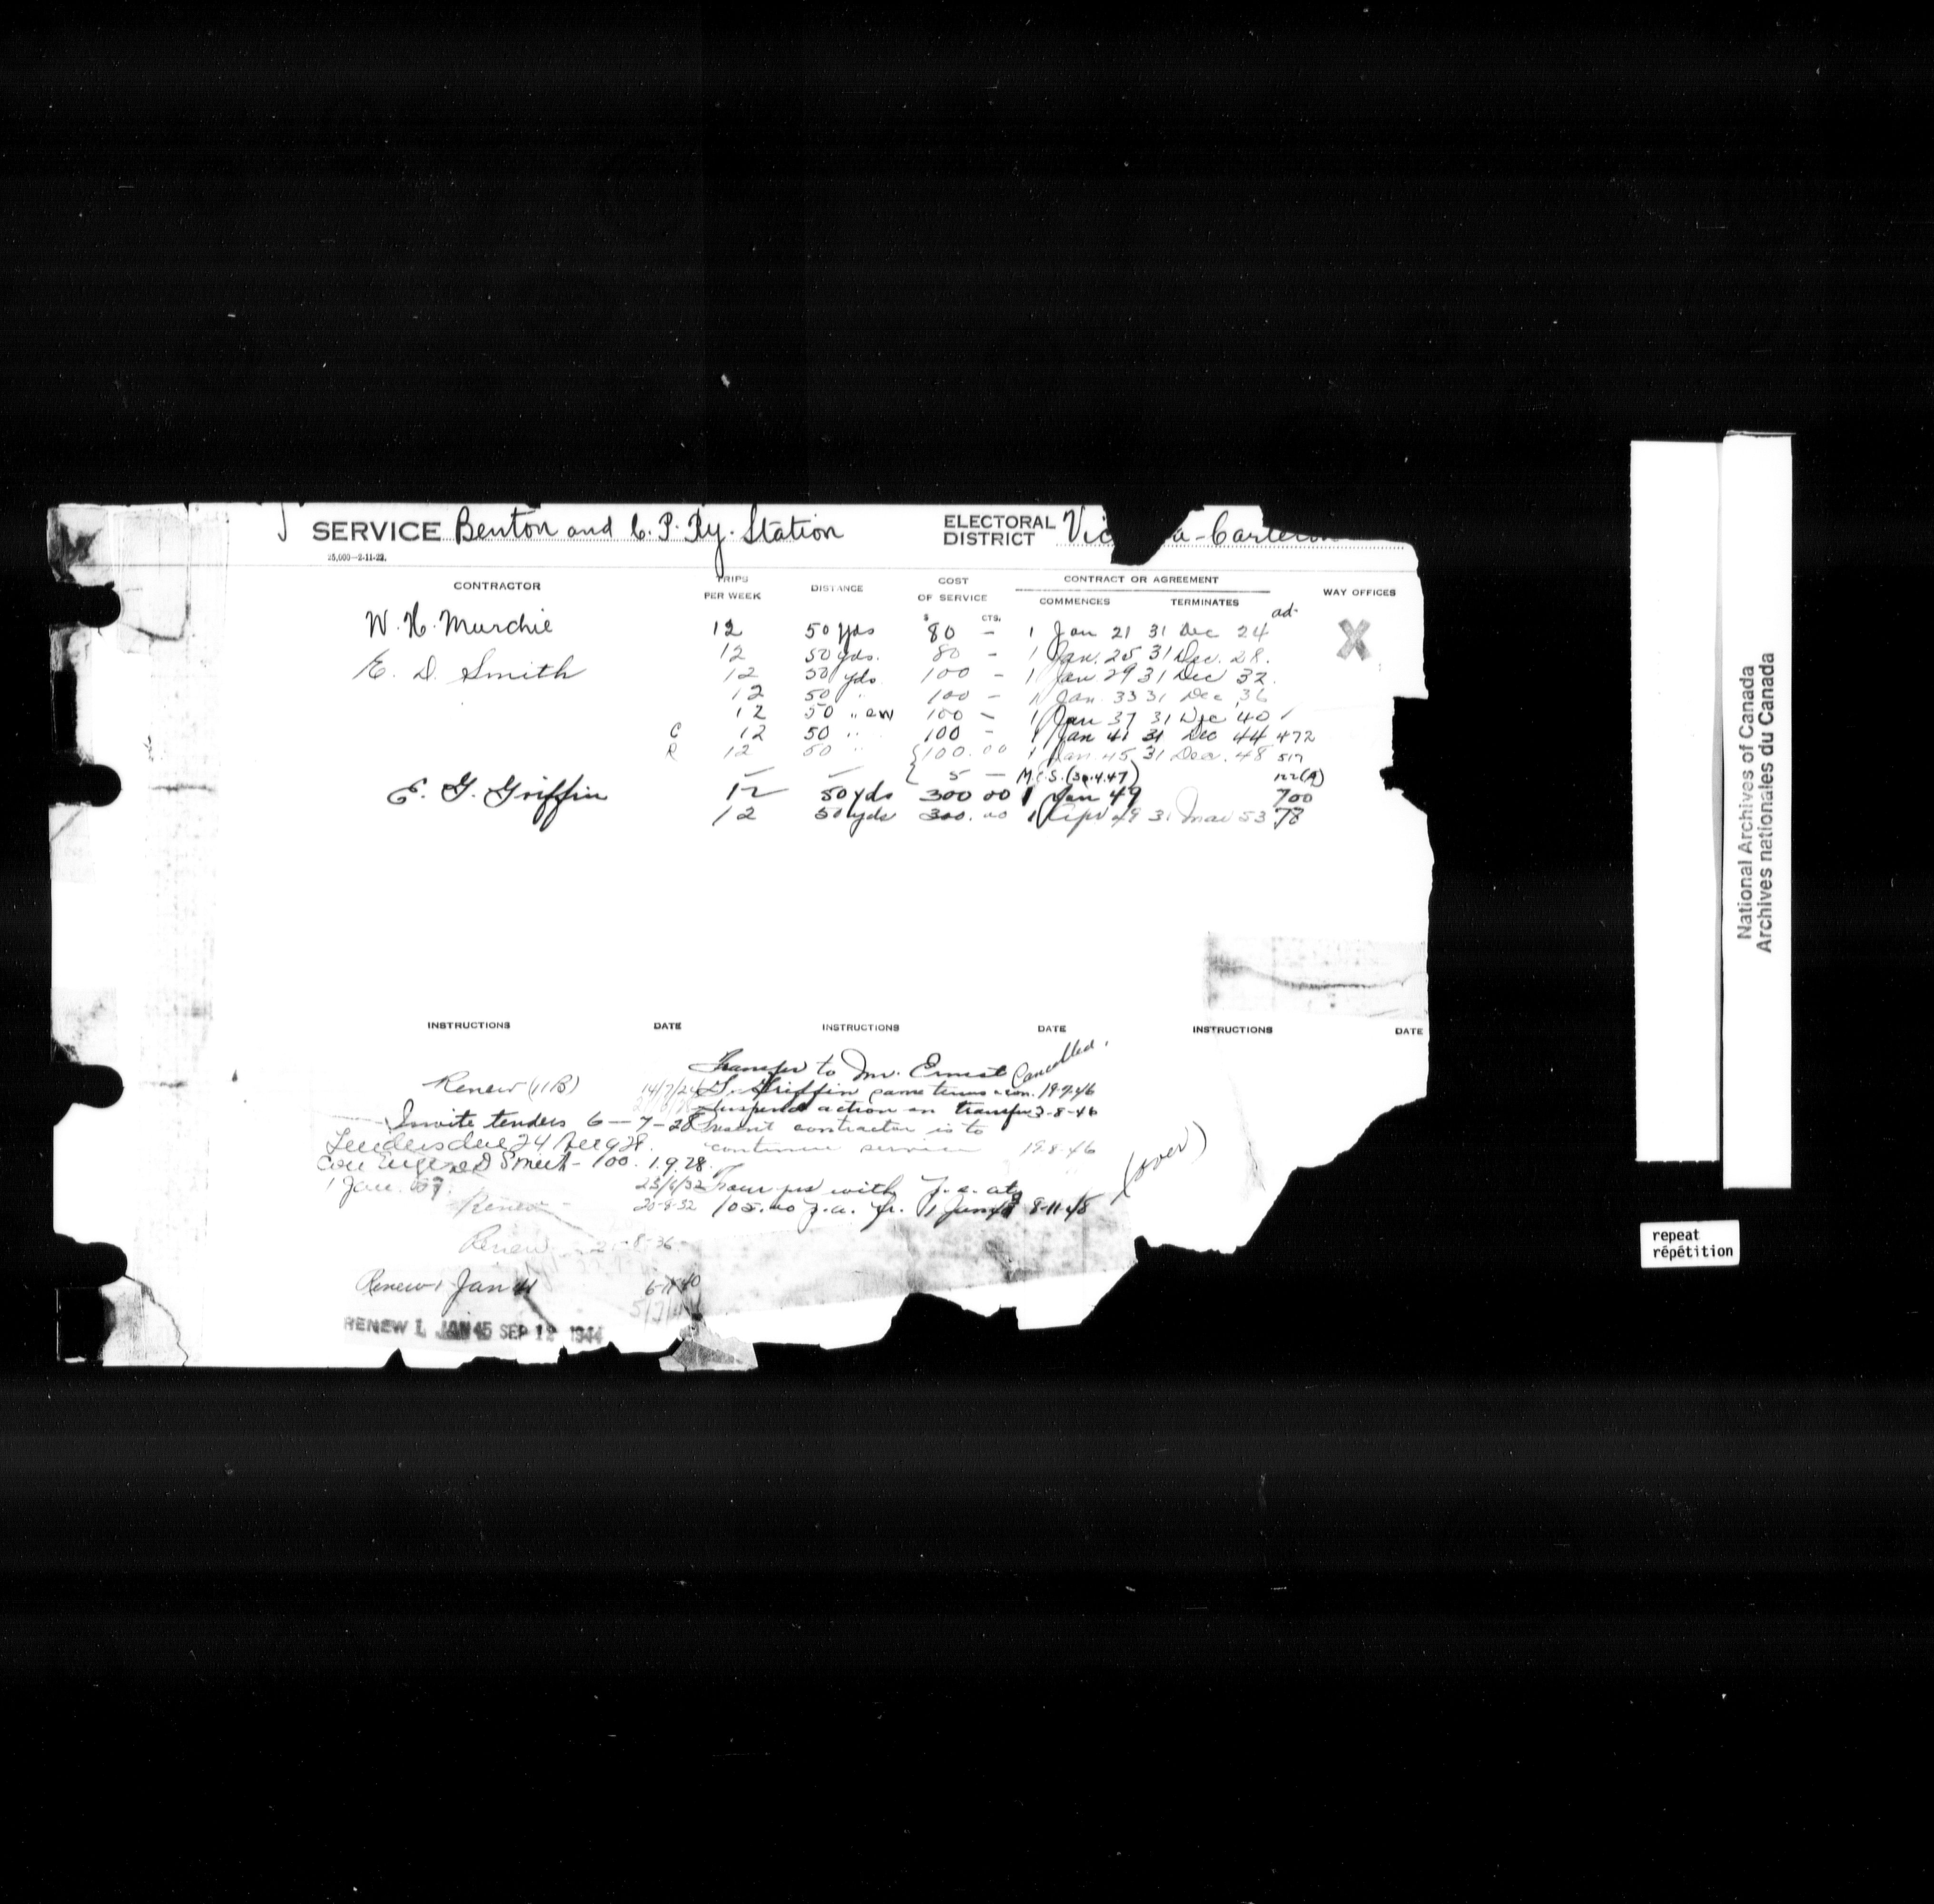 SERVICE Benton and C. P. Ry. Station ELECTORAL DISTRICT Vic a-Carleton
25,000—2-11-22.
CONTRACTOR TRIPS PER WEEK DISTANCE COST OF SERVICE CONTRACT OR AGREEMENT COMMENCES TERMINATES WAY OFFICES
$ CTS. ad-
W. H. Murchie 12 50 yds 80 - 1 Jan 21 31 Dec 24 X
12 50 yds. 80 - 1 Jan. 25 31 Dec. 28.
E. D. Smith 12 50 yds 100 - 1 Jan 29 31 Dec 32.
12 50 " 100 - 1 Jan. 33 31 Dec 36
12 50 " 100 - 1 Jan 37 31 Dec 40
C 12 50 " 100 - 1 Jan 41 31 Dec 44 472
R 12 50 " {100.00 1 Jan 45 31 Dec. 48 517
{ 5 - M.C.S. (30.4.47) (A)
E. G. Griffin 12 50 yds 300 00 1 Jan 49 700
12 50 yds 300.00 1 Apr 49 31 Mar 53 78
INSTRUCTIONS DATE INSTRUCTIONS DATE INSTRUCTIONS DATE
Renew (11B) 14/7/24
Invite tenders 6-7-28
Tenders due 24 Aug 28.
Con Eugene D Smith - 100. 1.9.28.
1 Jan.
23/6/32
Renew 20-8-32
Renew -8-36
Renew 1 Jan 41 6-11-40
RENEW 1 JAN 45 SEP 12 1944
Transfer to Mr. Ernest Cancelled.
G. Griffin same terms & con. 19-7-46
Suspend action on transfer 3-8-46
Present contractor is to
continue service 19-8-46
with
105.00 p.a. fr. 1 8-11-48
(over)
National Archives of Canada
Archives nationales du Canada
repeat
répétition